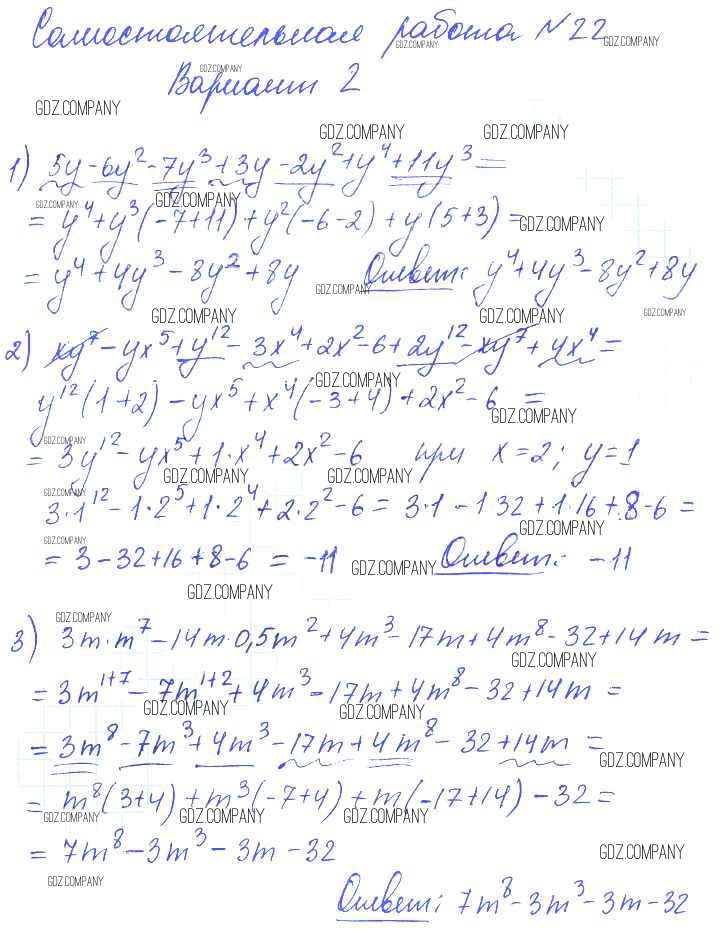 Самостоятельная работа №22
Вариант 2
1) 5y - 6y² - 7y³ + 3y - 2y² + y⁴ + 11y³ =
= y⁴ + y³(-7+11) + y²(-6-2) + y(5+3) =
= y⁴ + 4y³ - 8y² + 8y Ответ: y⁴ + 4y³ - 8y² + 8y
2) xy⁷ - yx⁵ + y¹² - 3x⁴ + 2x² - 6 + 2y¹² - xy⁷ + 4x⁴ =
y¹²(1+2) - yx⁵ + x⁴(-3+4) + 2x² - 6 =
= 3y¹² - yx⁵ + 1·x⁴ + 2x² - 6 при x=2; y=1
3·1¹² - 1·2⁵ + 1·2⁴ + 2·2² - 6 = 3·1 - 1·32 + 1·16 + 8 - 6 =
= 3 - 32 + 16 + 8 - 6 = -11 Ответ: -11
3) 3m·m⁷ - 14m·0,5m² + 4m³ - 17m + 4m⁸ - 32 + 14m =
= 3m¹⁺⁷ - 7m¹⁺² + 4m³ - 17m + 4m⁸ - 32 + 14m =
= 3m⁸ - 7m³ + 4m³ - 17m + 4m⁸ - 32 + 14m =
= m⁸(3+4) + m³(-7+4) + m(-17+14) - 32 =
= 7m⁸ - 3m³ - 3m - 32
Ответ: 7m⁸ - 3m³ - 3m - 32
GDZ.COMPANY